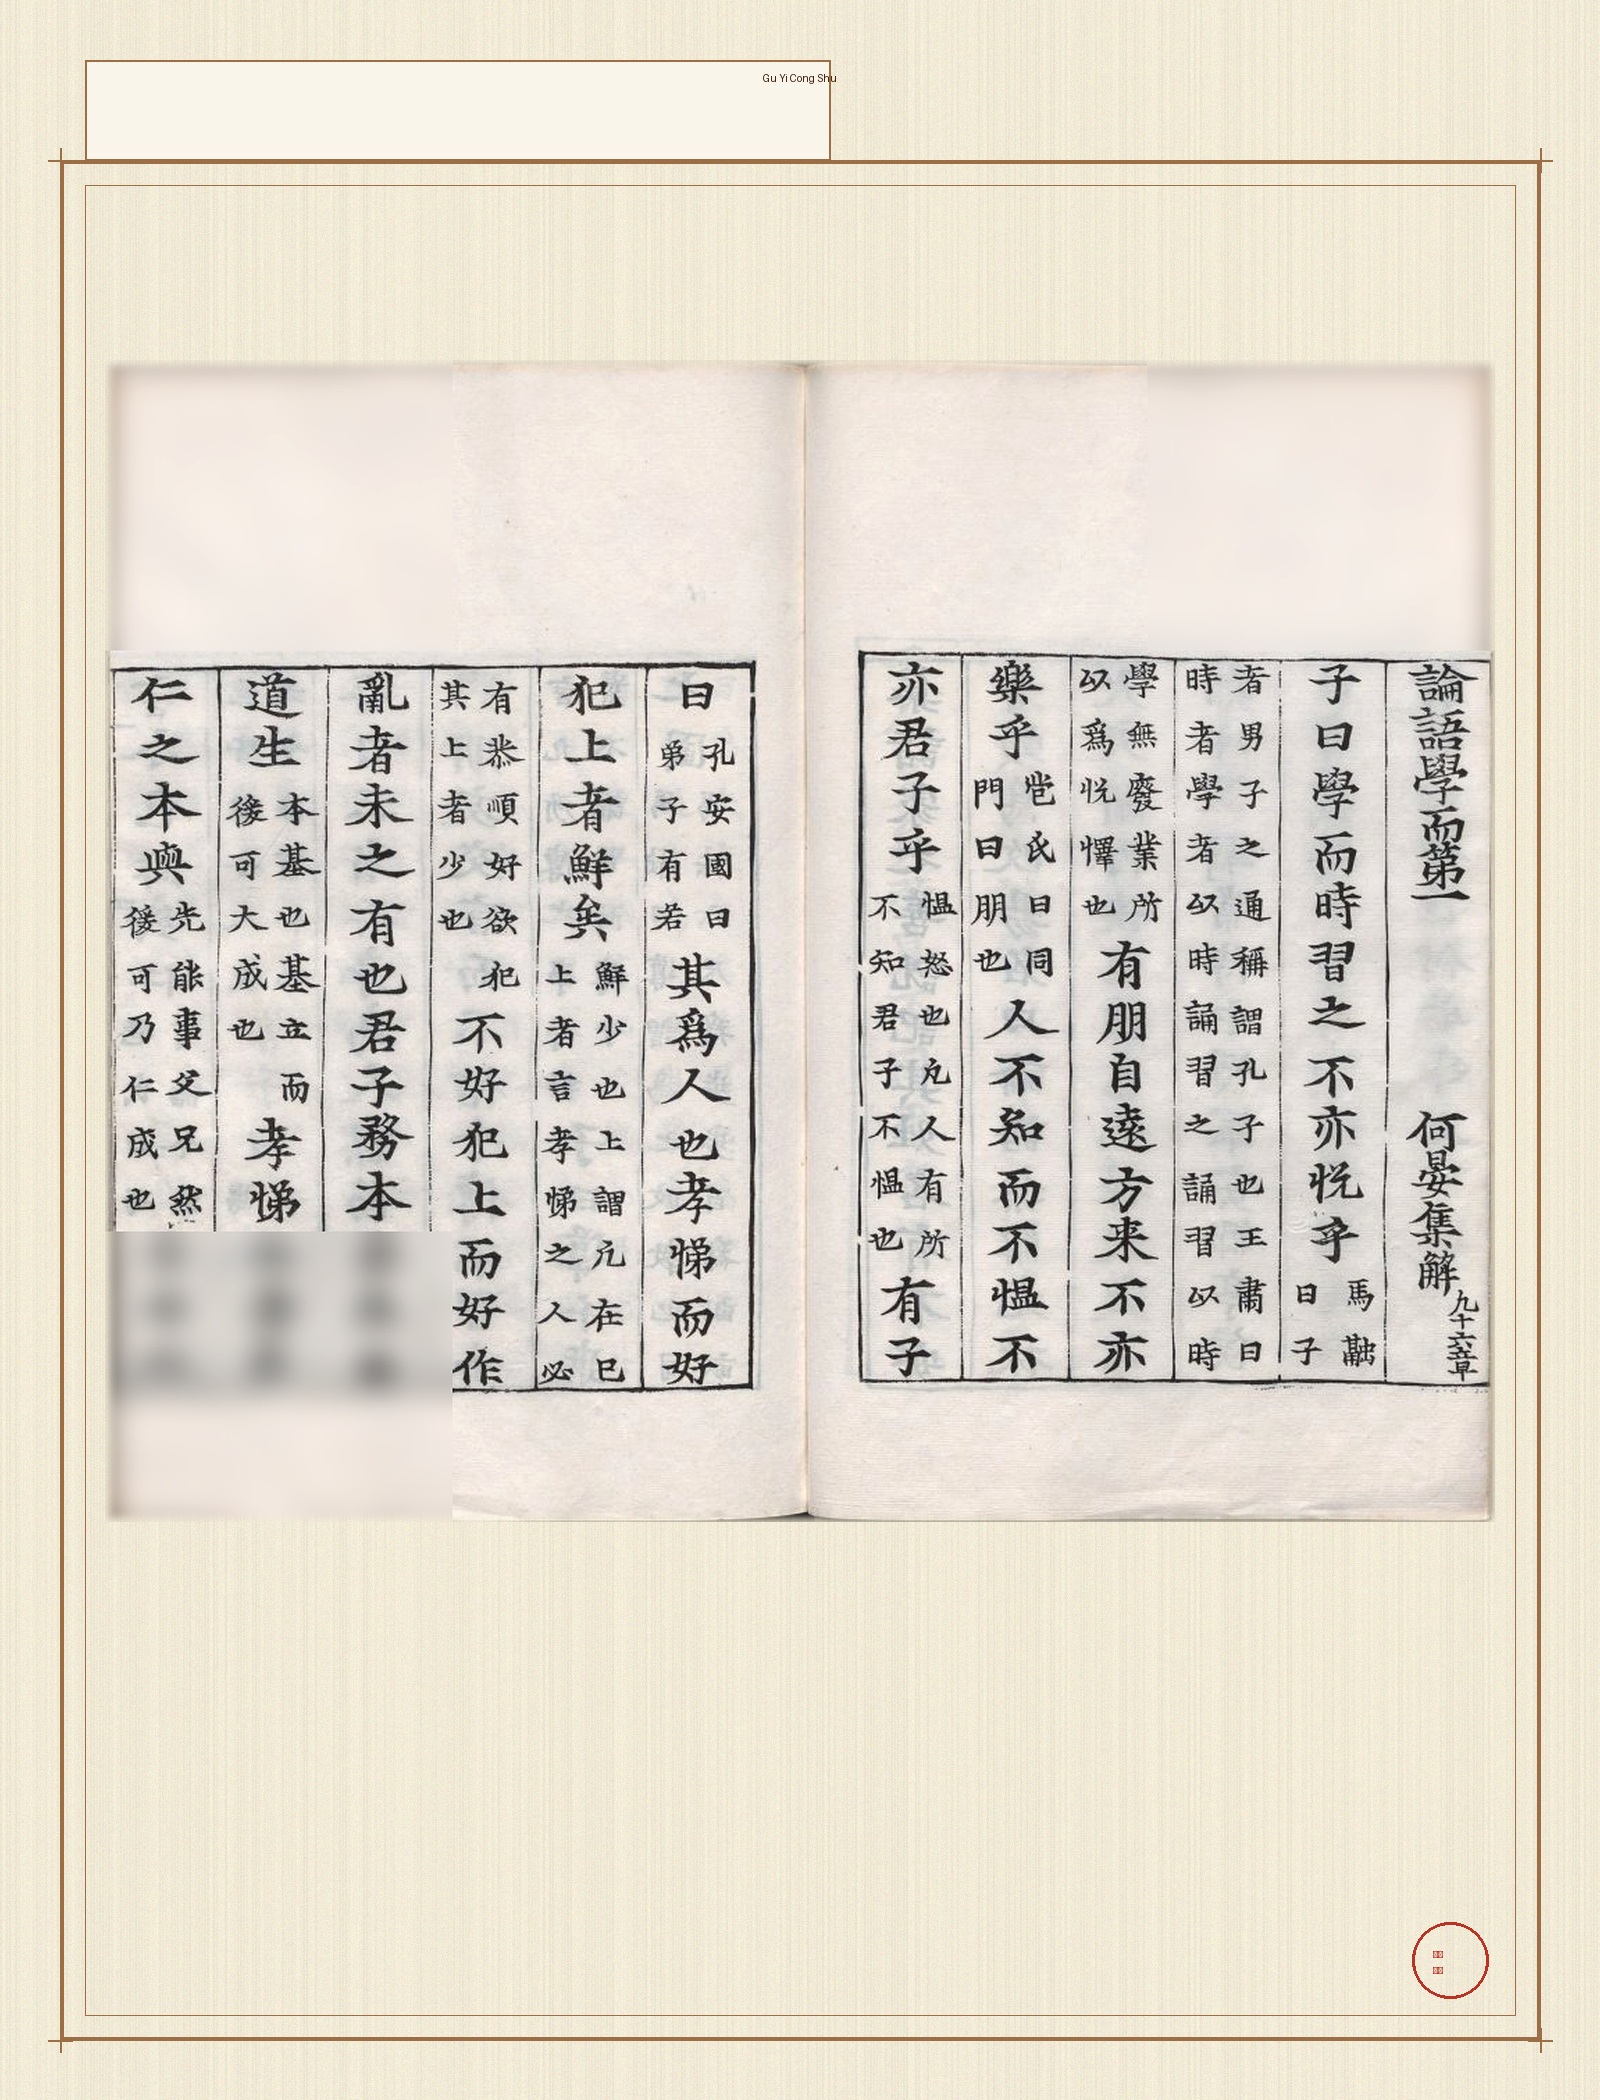 Gu Yi Cong Shu
論語學而第一 何晏集解 凡十六章
子曰學而時習之不亦悦乎 馬融曰子
者男子之通稱謂孔子也王肅曰時者學者以時誦習之誦習以時
學無廢業所以爲悦懌也 有朋自遠方来不亦
樂乎 苞氏曰同門曰朋也 人不知而不愠不
亦君子乎 愠怒也凡人有所不知君子不愠也 有子
曰 孔安國曰弟子有若 其爲人也孝悌而好
犯上者鮮矣 鮮少也上謂凢在已上者言孝悌之人必
有恭順好欲犯其上者少也 不好犯上而好作
亂者未之有也君子務本
道生 本基也基立而後可大成也 孝悌
仁之本與 先能事父兄然後可乃仁成也